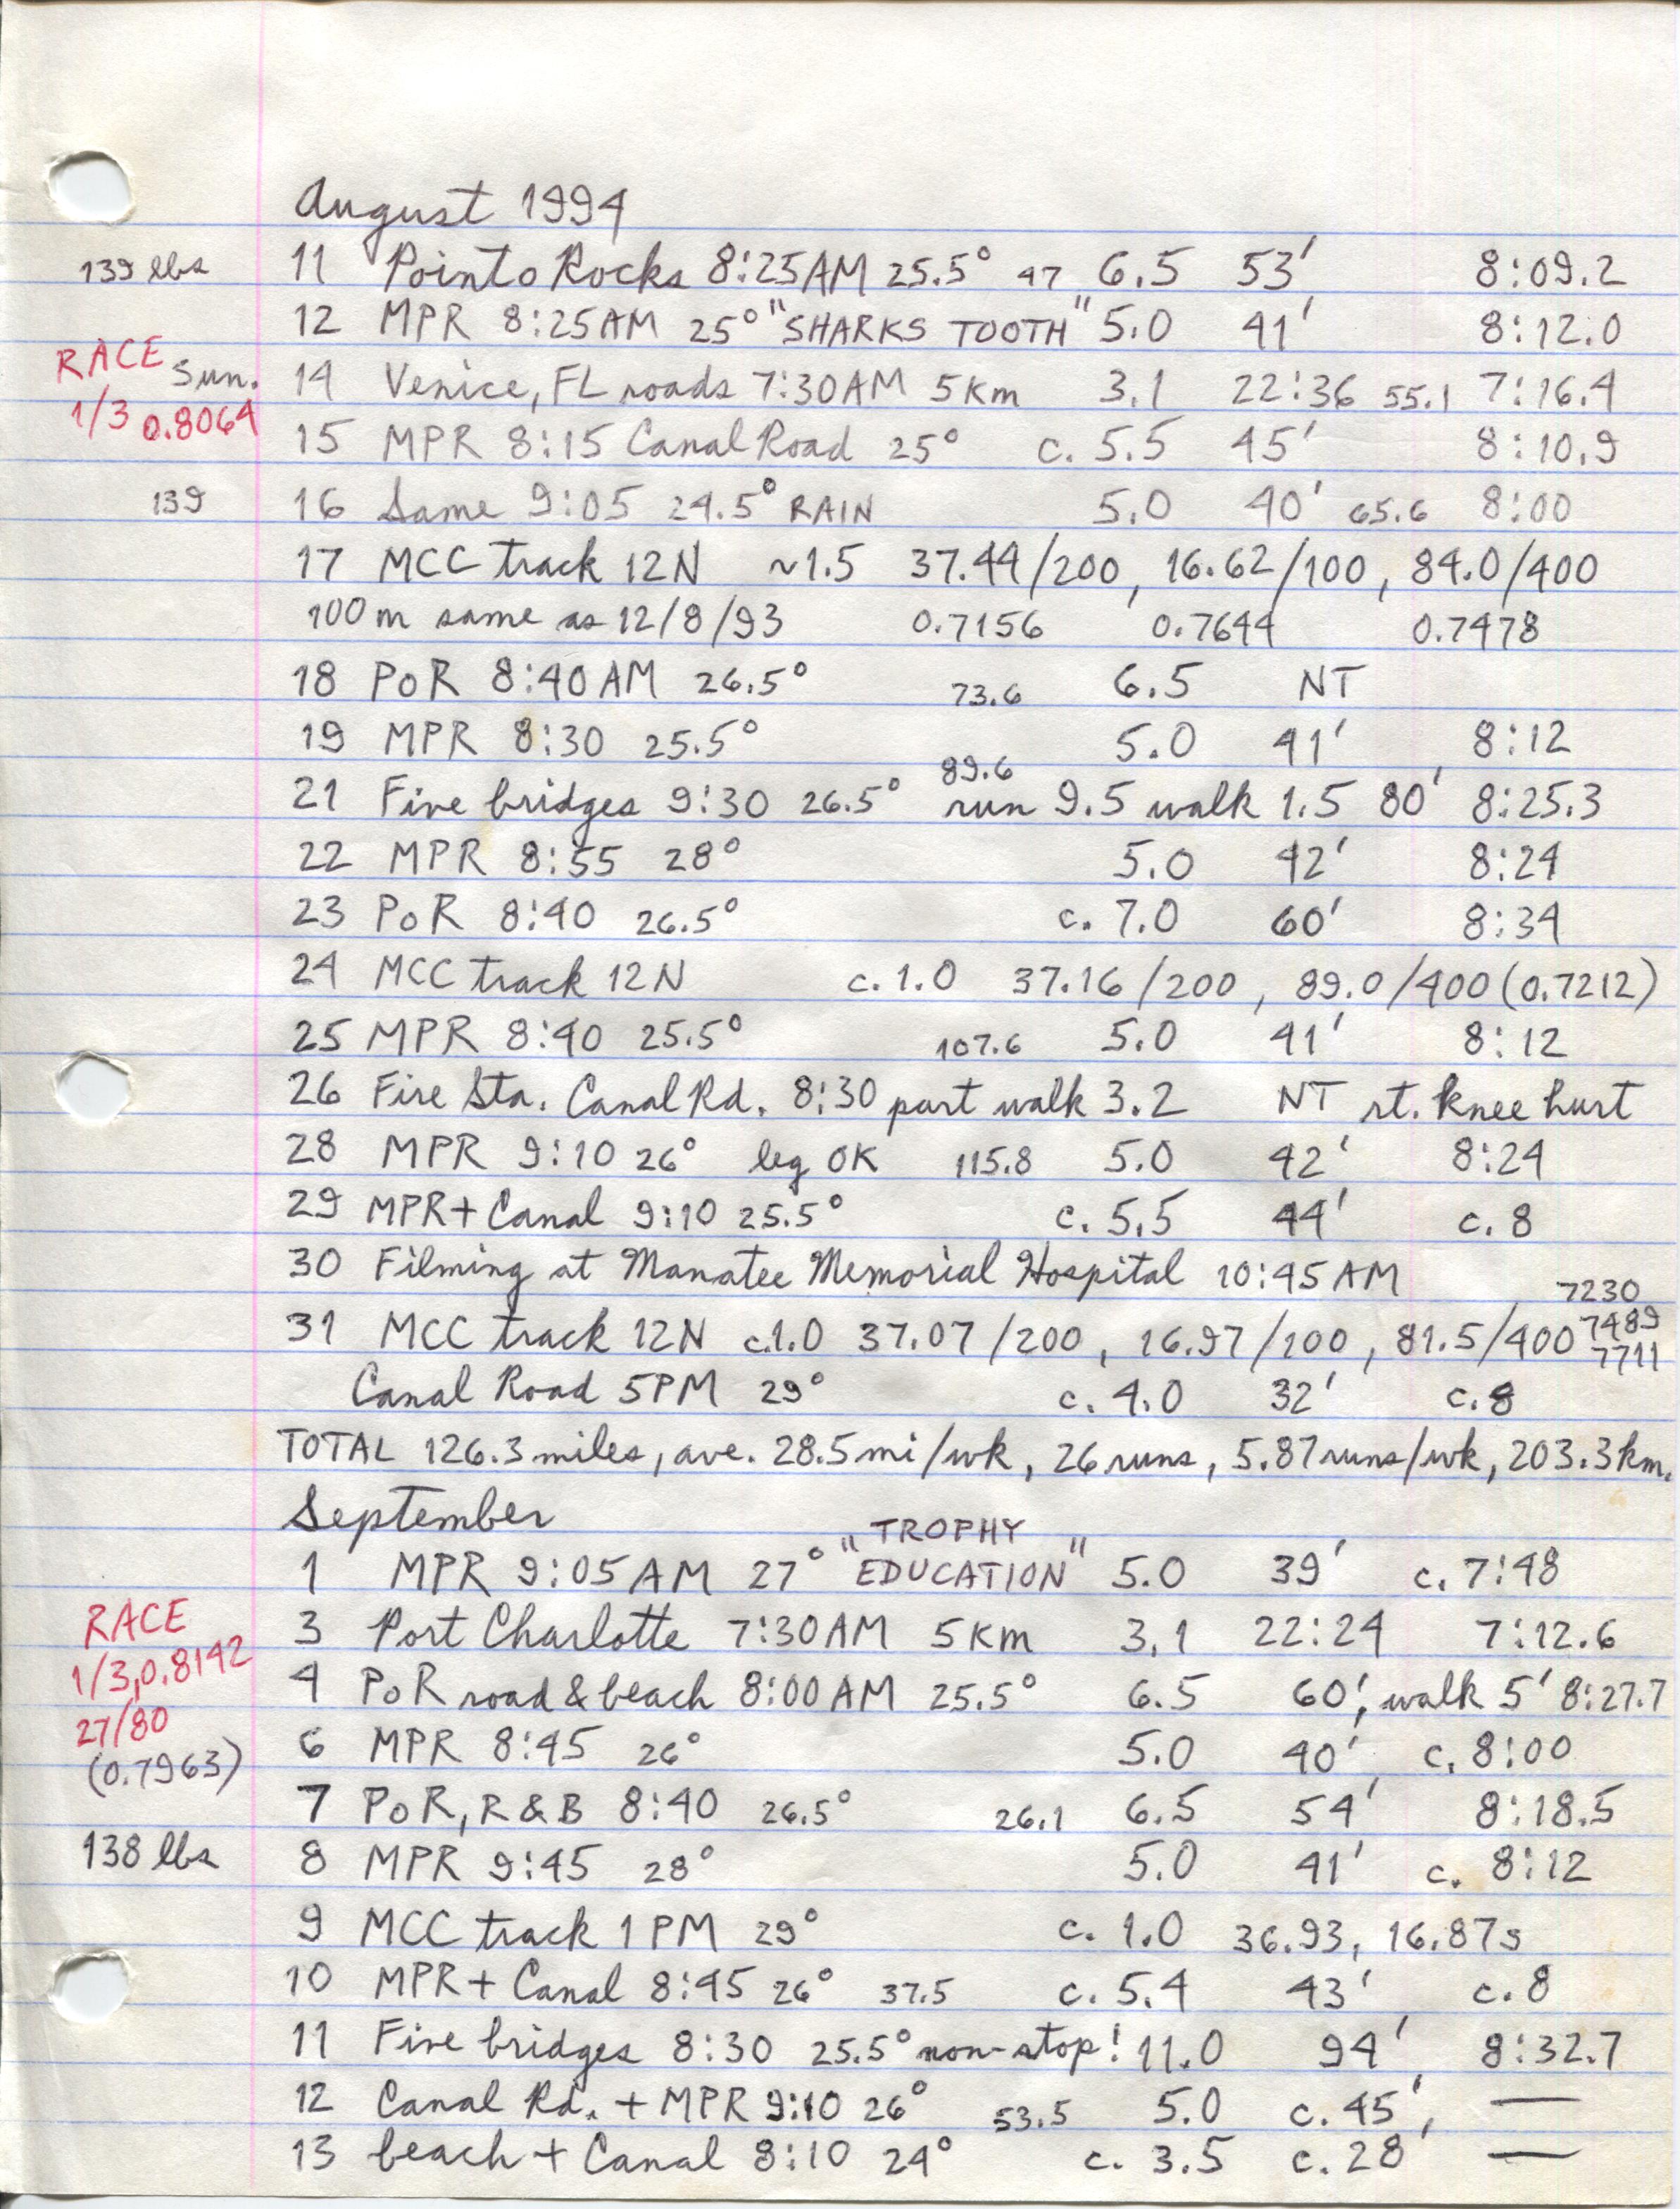 August 1994
139 lbs 11 Pointo Rocks 8:25AM 25.5° 47 6.5 53' 8:09.2
12 MPR 8:25AM 25° "SHARKS TOOTH" 5.0 41' 8:12.0
RACE Sun. 14 Venice, FL roads 7:30AM 5Km 3.1 22:36 55.1 7:16.4
1/3 0.8064
15 MPR 8:15 Canal Road 25° c. 5.5 45' 8:10.9
139 16 Same 9:05 24.5° RAIN 5.0 40' 65.6 8:00
17 MCC track 12N ~1.5 37.44/200, 16.62/100, 84.0/400
100m same as 12/8/93 0.7156 0.7644 0.7478
18 PoR 8:40AM 26.5° 73.6 6.5 NT
19 MPR 8:30 25.5° 5.0 41' 8:12
21 Five bridges 9:30 26.5° 89.6 run 9.5 walk 1.5 80' 8:25.3
22 MPR 8:55 28° 5.0 42' 8:24
23 PoR 8:40 26.5° c. 7.0 60' 8:34
24 MCC track 12N c. 1.0 37.16/200, 89.0/400 (0.7212)
25 MPR 8:40 25.5° 107.6 5.0 41' 8:12
26 Fire Sta. Canal Rd. 8:30 part walk 3.2 NT rt. knee hurt
28 MPR 9:10 26° leg OK 115.8 5.0 42' 8:24
29 MPR+Canal 9:10 25.5° c. 5.5 44' c. 8
30 Filming at Manatee Memorial Hospital 10:45AM
7230
31 MCC track 12N c.1.0 37.07/200, 16.97/100, 81.5/400 7489
7711
Canal Road 5PM 29° c. 4.0 32' c. 8
TOTAL 126.3 miles, ave. 28.5 mi/wk, 26 runs, 5.87 runs/wk, 203.3km.
September
"TROPHY
1 MPR 9:05AM 27° EDUCATION" 5.0 39' c. 7:48
RACE 3 Port Charlotte 7:30AM 5Km 3.1 22:24 7:12.6
1/3, 0.8142
4 PoR road & beach 8:00AM 25.5° 6.5 60', walk 5' 8:27.7
27/80
6 MPR 8:45 26° 5.0 40' c. 8:00
(0.7963)
7 PoR, R&B 8:40 26.5° 26.1 6.5 54' 8:18.5
138 lbs 8 MPR 9:45 28° 5.0 41' c. 8:12
9 MCC track 1PM 29° c. 1.0 36.93, 16.87s
10 MPR+Canal 8:45 26° 37.5 c. 5.4 43' c. 8
11 Five bridges 8:30 25.5° non-stop! 11.0 94' 8:32.7
12 Canal Rd. + MPR 9:10 26° 53.5 5.0 c. 45', —
13 beach + Canal 8:10 24° c. 3.5 c. 28' —